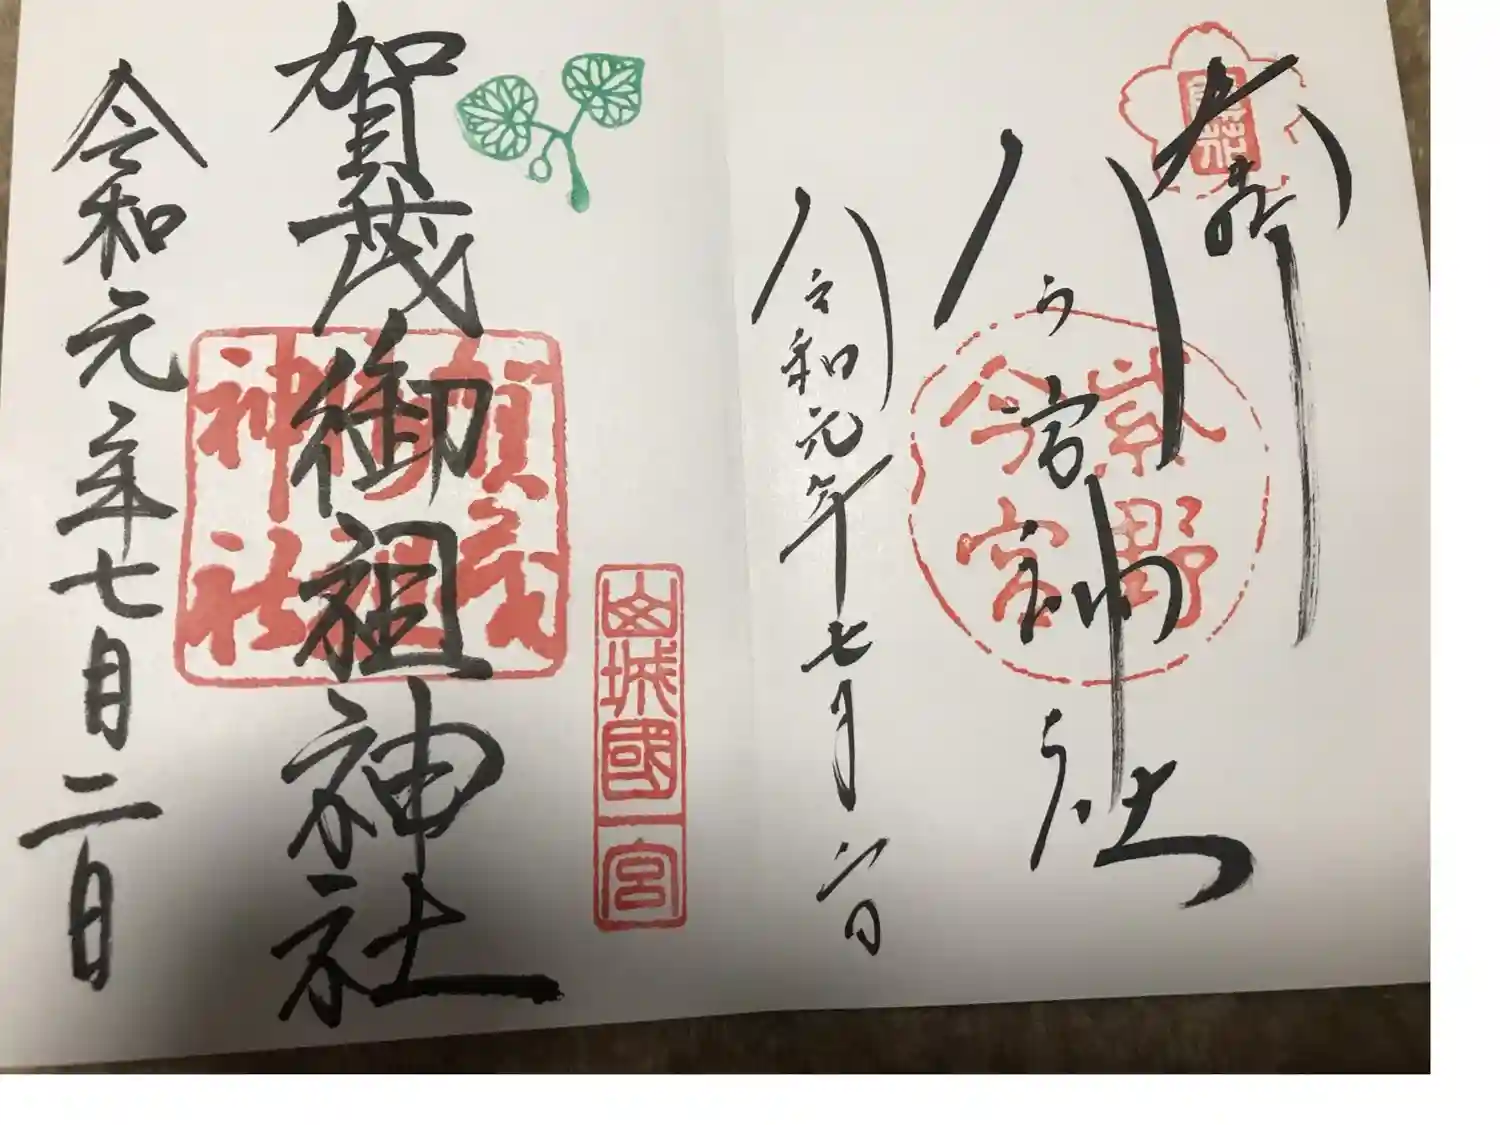 奉拝
今宮神社
紫野
今宮
令和元年七月二日
山城國一宮
賀茂御祖神社
賀茂
御祖
神社
令和元年七月二日